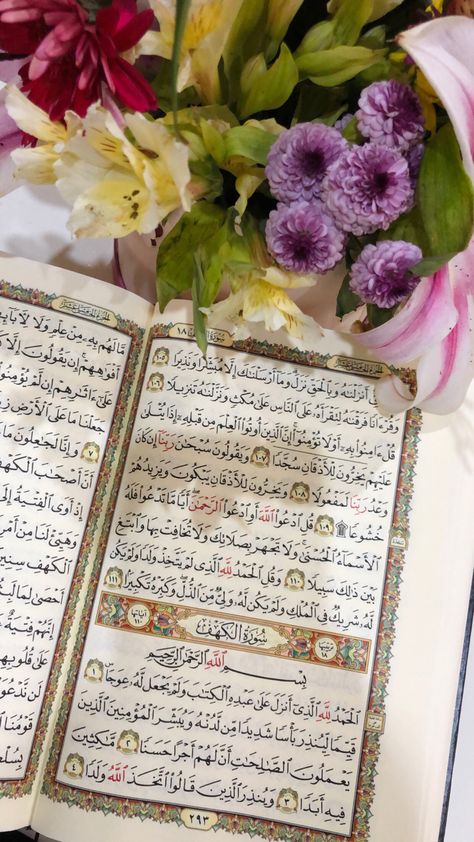 سُورَةُ الْكَهْفِ ١٨
الجزء الخامس عشر
أَنزَلْنَٰهُ وَبِالْحَقِّ نَزَلَ وَمَا أَرْسَلْنَٰكَ إِلَّا مُبَشِّرًا وَنَذِيرًا ١٠٥
وَقُرْءَانًا فَرَقْنَٰهُ لِتَقْرَأَهُ عَلَى النَّاسِ عَلَىٰ مُكْثٍ وَنَزَّلْنَٰهُ تَنزِيلًا ١٠٦
قُلْ ءَامِنُوا بِهِ أَوْ لَا تُؤْمِنُوا إِنَّ الَّذِينَ أُوتُوا الْعِلْمَ مِن قَبْلِهِ إِذَا يُتْلَىٰ
عَلَيْهِمْ يَخِرُّونَ لِلْأَذْقَانِ سُجَّدًا ١٠٧ وَيَقُولُونَ سُبْحَٰنَ رَبِّنَا إِن كَانَ
وَعْدُ رَبِّنَا لَمَفْعُولًا ١٠٨ وَيَخِرُّونَ لِلْأَذْقَانِ يَبْكُونَ وَيَزِيدُهُمْ
خُشُوعًا ۩ ١٠٩ قُلِ ادْعُوا اللَّهَ أَوِ ادْعُوا الرَّحْمَٰنَ أَيًّا مَّا تَدْعُوا فَلَهُ
الْأَسْمَاءُ الْحُسْنَىٰ وَلَا تَجْهَرْ بِصَلَاتِكَ وَلَا تُخَافِتْ بِهَا وَابْتَغِ
بَيْنَ ذَٰلِكَ سَبِيلًا ١١٠ وَقُلِ الْحَمْدُ لِلَّهِ الَّذِي لَمْ يَتَّخِذْ وَلَدًا وَلَمْ يَكُن
لَّهُ شَرِيكٌ فِي الْمُلْكِ وَلَمْ يَكُن لَّهُ وَلِيٌّ مِّنَ الذُّلِّ وَكَبِّرْهُ تَكْبِيرًا ١١١
ترتيبها ١٨ سُورَةُ الْكَهْفِ آياتها ١١٠
بِسْمِ اللَّهِ الرَّحْمَٰنِ الرَّحِيمِ
الْحَمْدُ لِلَّهِ الَّذِي أَنزَلَ عَلَىٰ عَبْدِهِ الْكِتَٰبَ وَلَمْ يَجْعَل لَّهُ عِوَجًا ١
قَيِّمًا لِّيُنذِرَ بَأْسًا شَدِيدًا مِّن لَّدُنْهُ وَيُبَشِّرَ الْمُؤْمِنِينَ الَّذِينَ
يَعْمَلُونَ الصَّٰلِحَٰتِ أَنَّ لَهُمْ أَجْرًا حَسَنًا ٢ مَّٰكِثِينَ
فِيهِ أَبَدًا ٣ وَيُنذِرَ الَّذِينَ قَالُوا اتَّخَذَ اللَّهُ وَلَدًا ٤
٢٩٣
الجزء الخامس عشر
مَّا لَهُم بِهِ مِنْ عِلْمٍ وَلَا
أَفْوَٰهِهِمْ إِن يَقُولُونَ إِلَّا
عَلَىٰ ءَاثَٰرِهِمْ إِن لَّمْ يُؤْمِنُوا
جَعَلْنَا مَا عَلَى الْأَرْضِ
٧ وَإِنَّا لَجَٰعِلُونَ مَا
أَنَّ أَصْحَٰبَ الْكَهْفِ
إِذْ أَوَى الْفِتْيَةُ إِلَى
وَهَيِّئْ لَنَا مِنْ
الْكَهْفِ سِنِينَ
أَحْصَىٰ لِمَا
إِنَّهُمْ فِتْيَةٌ
عَلَىٰ قُلُوبِهِمْ
لَن نَّدْعُوَا
قَوْمُنَا